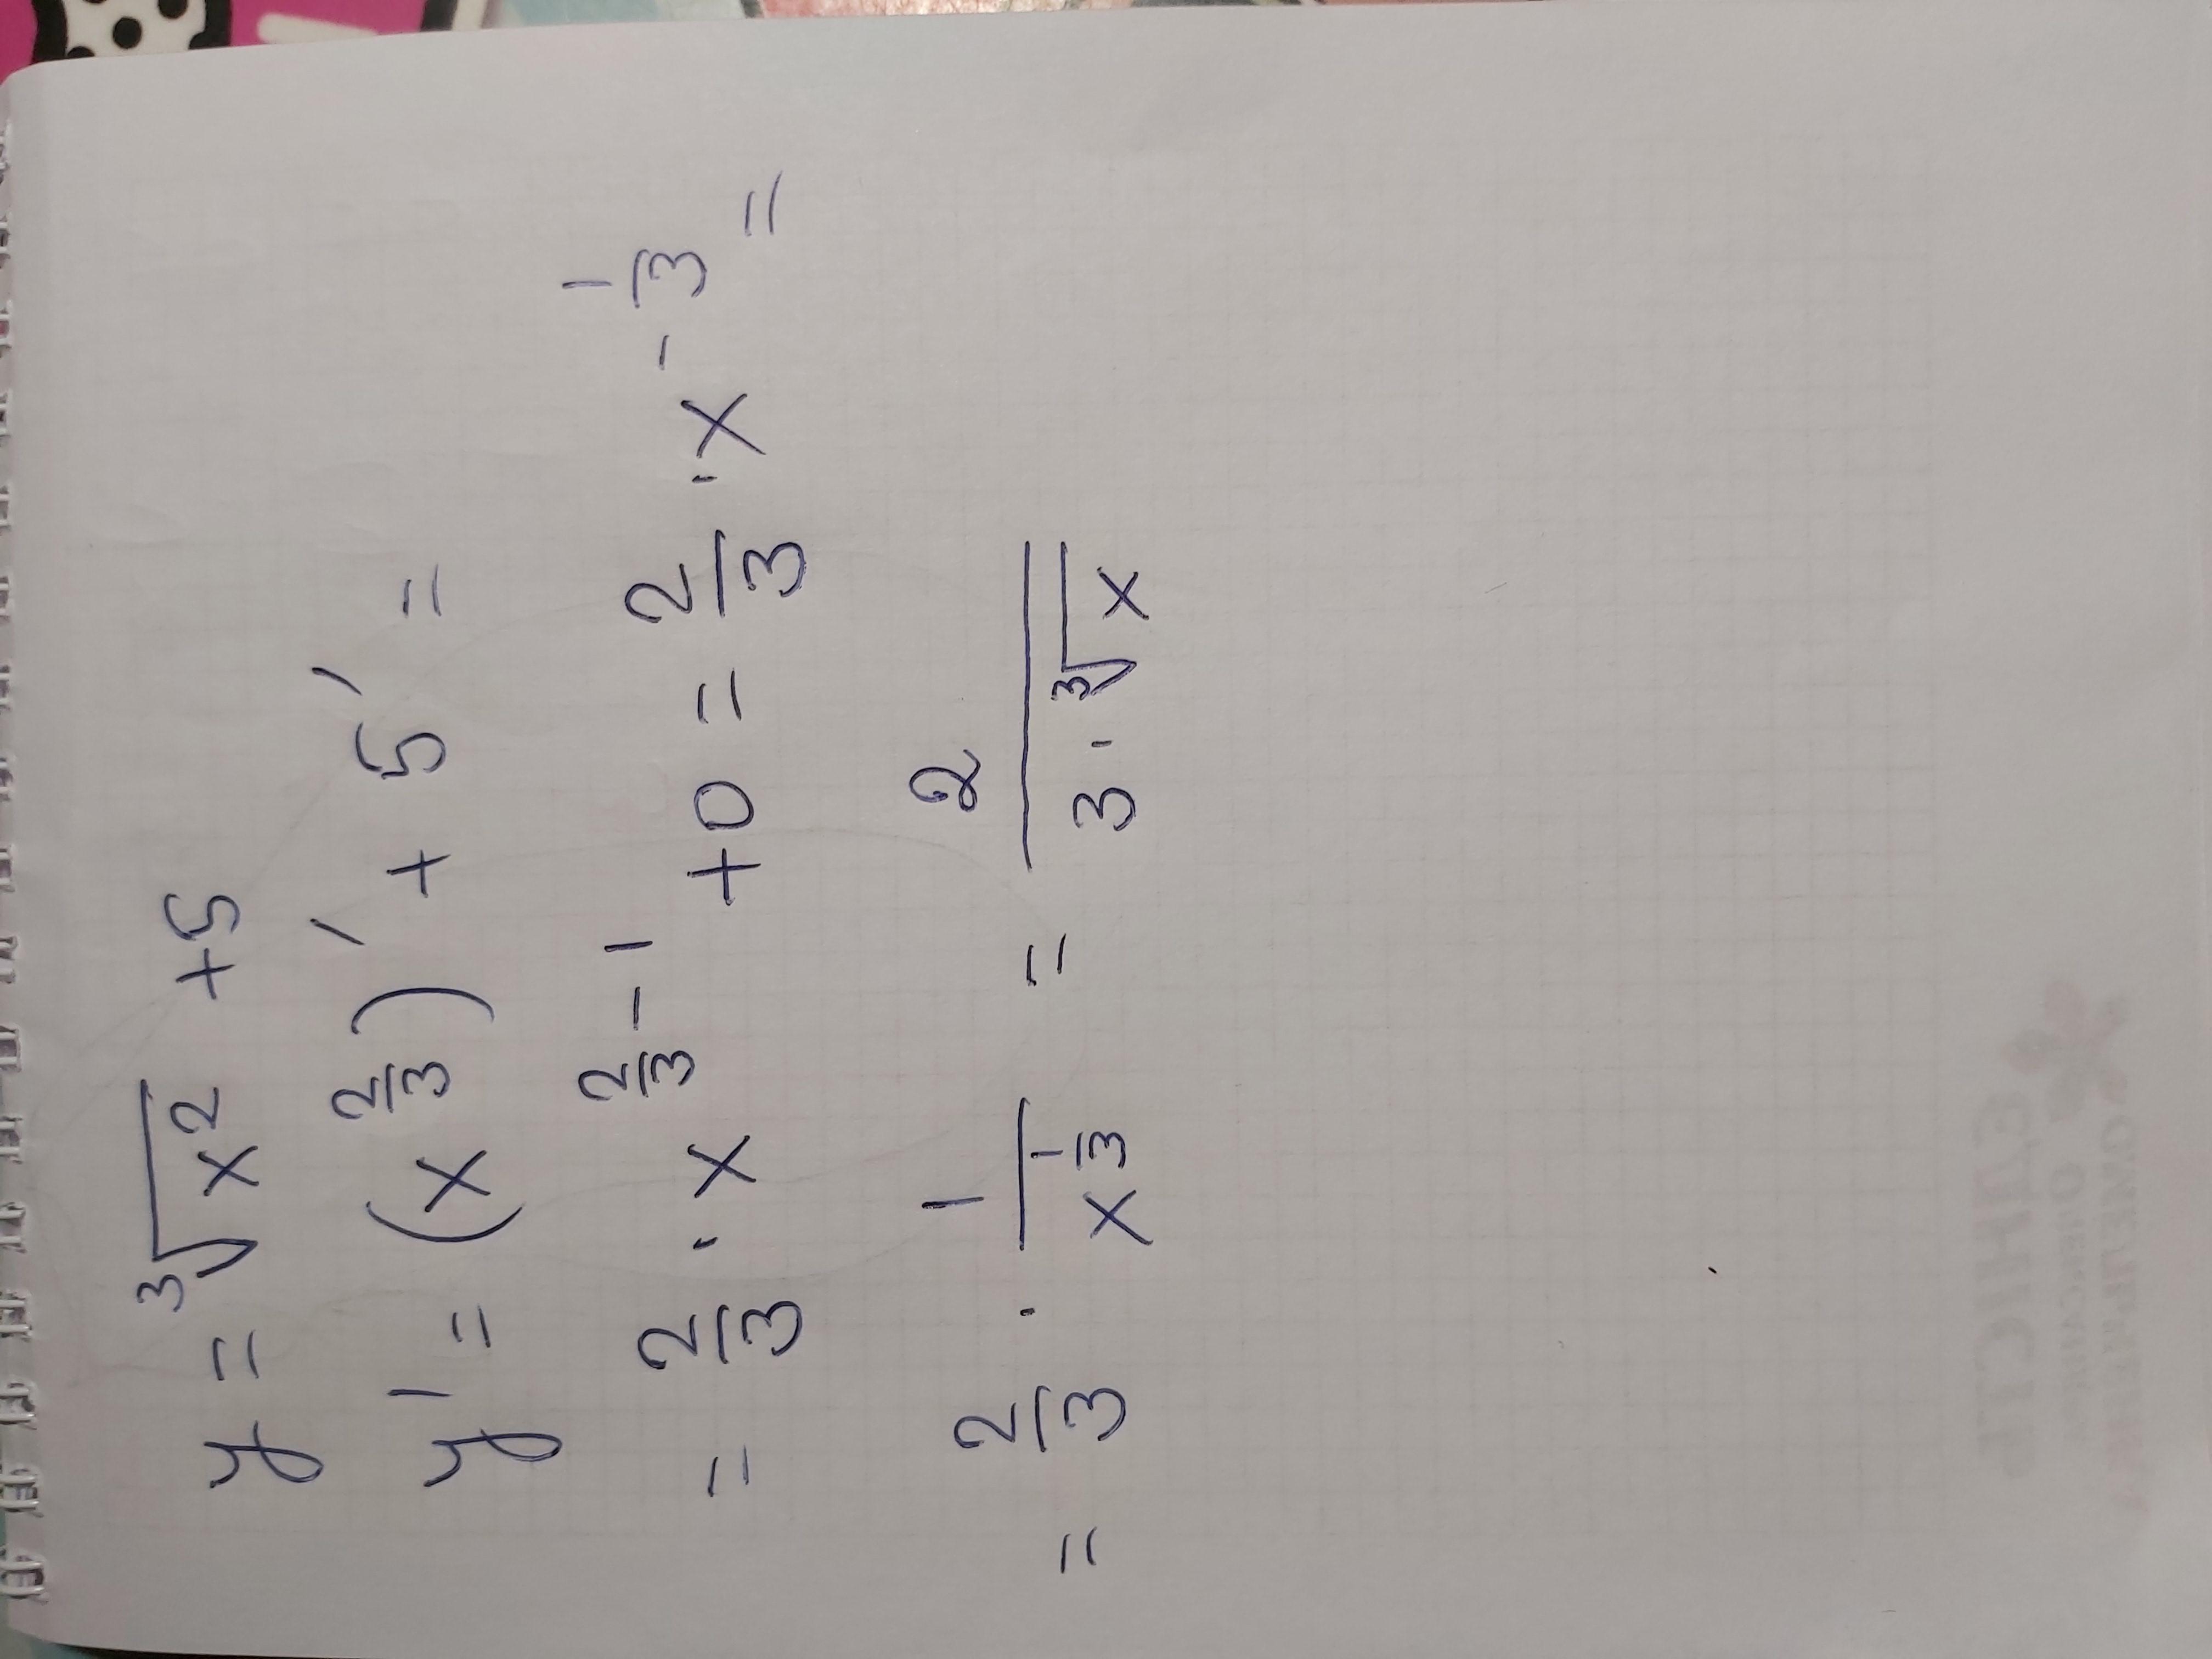 y = ∛x² + 5
y' = (x^(2/3))' + 5' =
= 2/3 · x^(2/3 - 1) + 0 = 2/3 · x^(-1/3) =
= 2/3 · 1/x^(1/3) = 2/(3 · ∛x)